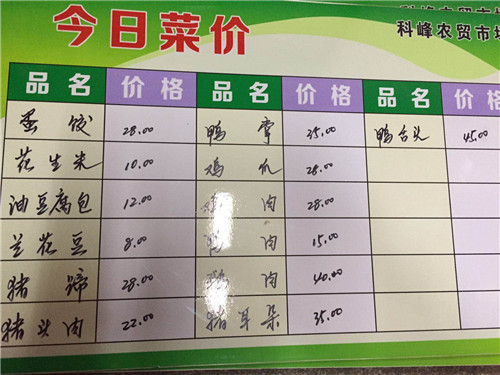 今日菜价 科峰农贸市场
品名 价格 品名 价格 品名 价格
蛋饺 28.00 鸭掌 35.00 鸭舌头 45.00
花生米 10.00 鸡爪 28.00
油豆腐包 12.00 肉 28.00
兰花豆 8.00 肉 15.00
猪蹄 28.00 肉 40.00
猪头肉 22.00 猪耳朵 35.00